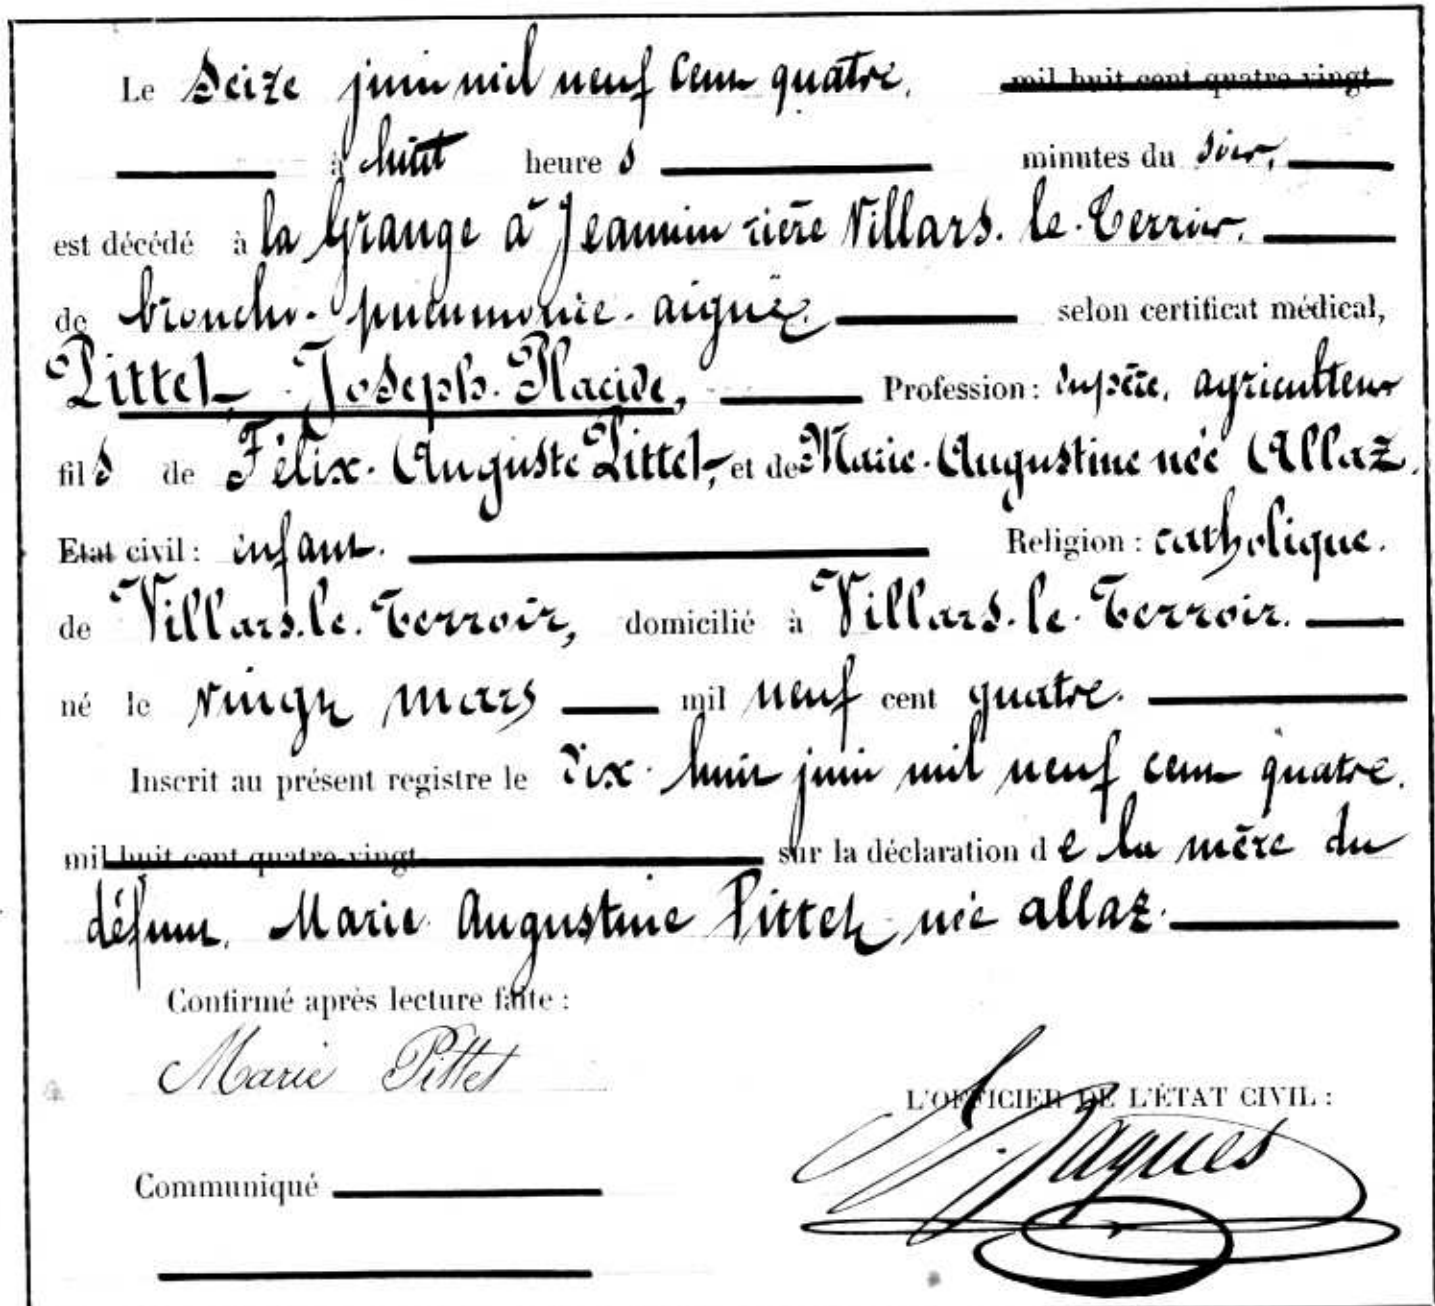 Le Seize juin mil neuf cent quatre. mil huit cent quatre-vingt
à huit heures minutes du soir,
est décédé à la Grange à Jeannin rière Villars-le-Terroir.
de broncho-pneumonie-aiguë. selon certificat médical,
Pittet, Joseph-Placide, Profession: du père, agriculteur
fils de Félix-Auguste Pittet, et de Marie-Augustine née Allaz.
Etat civil: enfant. Religion: catholique.
de Villars-le-Terroir, domicilié à Villars-le-Terroir.
né le vingt mars mil neuf cent quatre.
Inscrit au présent registre le dix-huit juin mil neuf cent quatre.
mil huit cent quatre-vingt sur la déclaration de la mère du
défunt, Marie Augustine Pittet née allaz.
Confirmé après lecture faite:
Marie Pittet
L'OFFICIER DE L'ÉTAT CIVIL:
Jaques
Communiqué